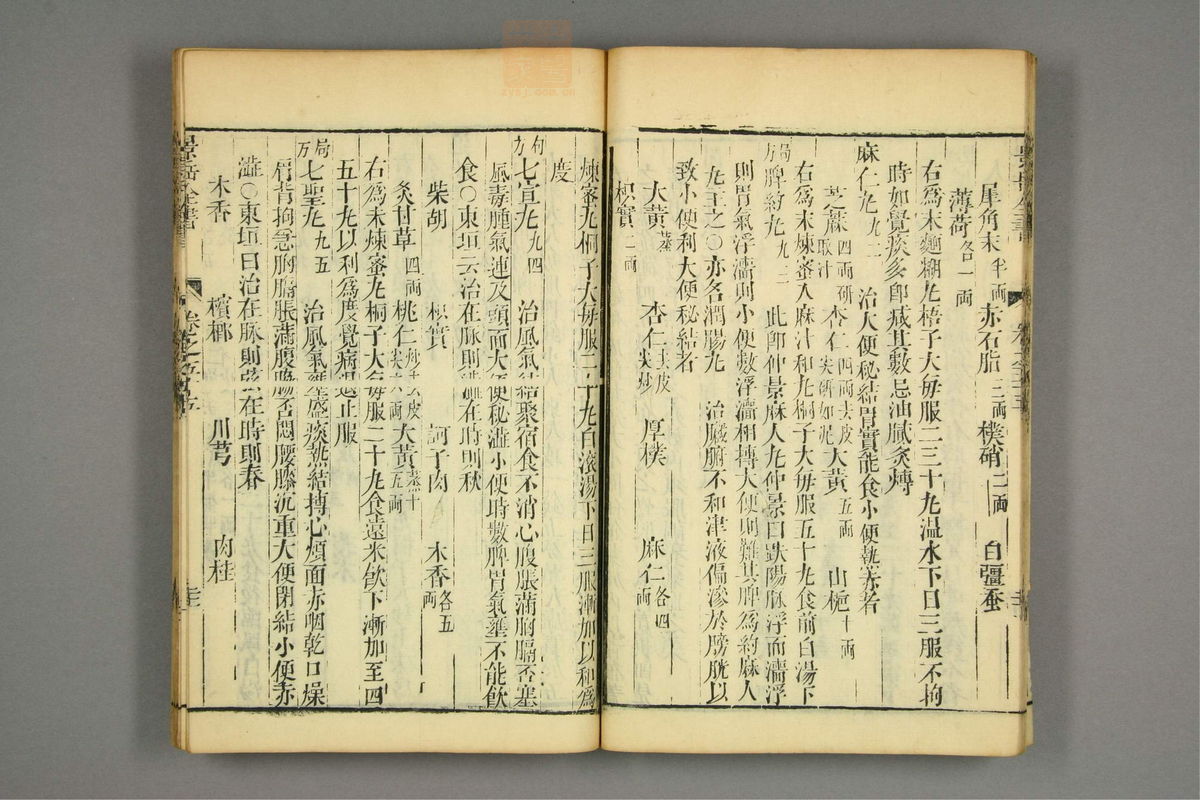 犀角末半両 赤石脂三両 樸硝二両 白殭蚕
薄荷各一両
右為末麵糊丸梧子大毎服二三十丸温水下日三服不拘
時如覺痰多即臧其數忌油膩炙煿
麻仁丸九二 治大便秘結胃實能食小便熱赤者
芝蔴四両研取汁 杏仁四両去皮尖研如泥 大黄五両 山梔十両
右為末煉蜜入麻汁和丸桐子大毎服五十丸食前白湯下
局方脾約丸九三 此卽仲景麻人丸仲景曰趺陽脉浮而濇浮
則胃氣浮濇則小便數浮濇相搏大便則難其脾為約麻人
丸主之○亦名潤腸丸 治臟腑不和津液偏滲於膀胱以
致小便利大便秘結者
大黄蒸 杏仁去皮尖炒 厚樸 麻仁各四両
枳實二両
煉蜜丸桐子大毎服二十丸白滚湯下日三服漸加以和為
度
局方七宣丸九四 治風氣結聚宿食不消心腹脹滿胸膈否塞
風毒腫氣連及頭面大便秘澁小便時數脾胃氣壅不能飲
食○東垣云治在脉則澁在時則秋
柴胡 枳實 訶子肉 木香各五両
炙甘草四両 桃仁炒去皮尖六両 大黄蒸十五両
右為末煉蜜丸桐子大毎服二十丸食遠米飲下漸加至四
五十丸以利為度覺病退止服
局方七聖丸九五 治風氣壅盛痰熱結搏心煩面赤咽乾口燥
肩背拘急胸膈脹滿腹脇否悶腰膝沉重大便閉結小便赤
澁○東垣曰治在脉則弦在時則春
木香 檳榔 川芎 肉桂
景岳全書